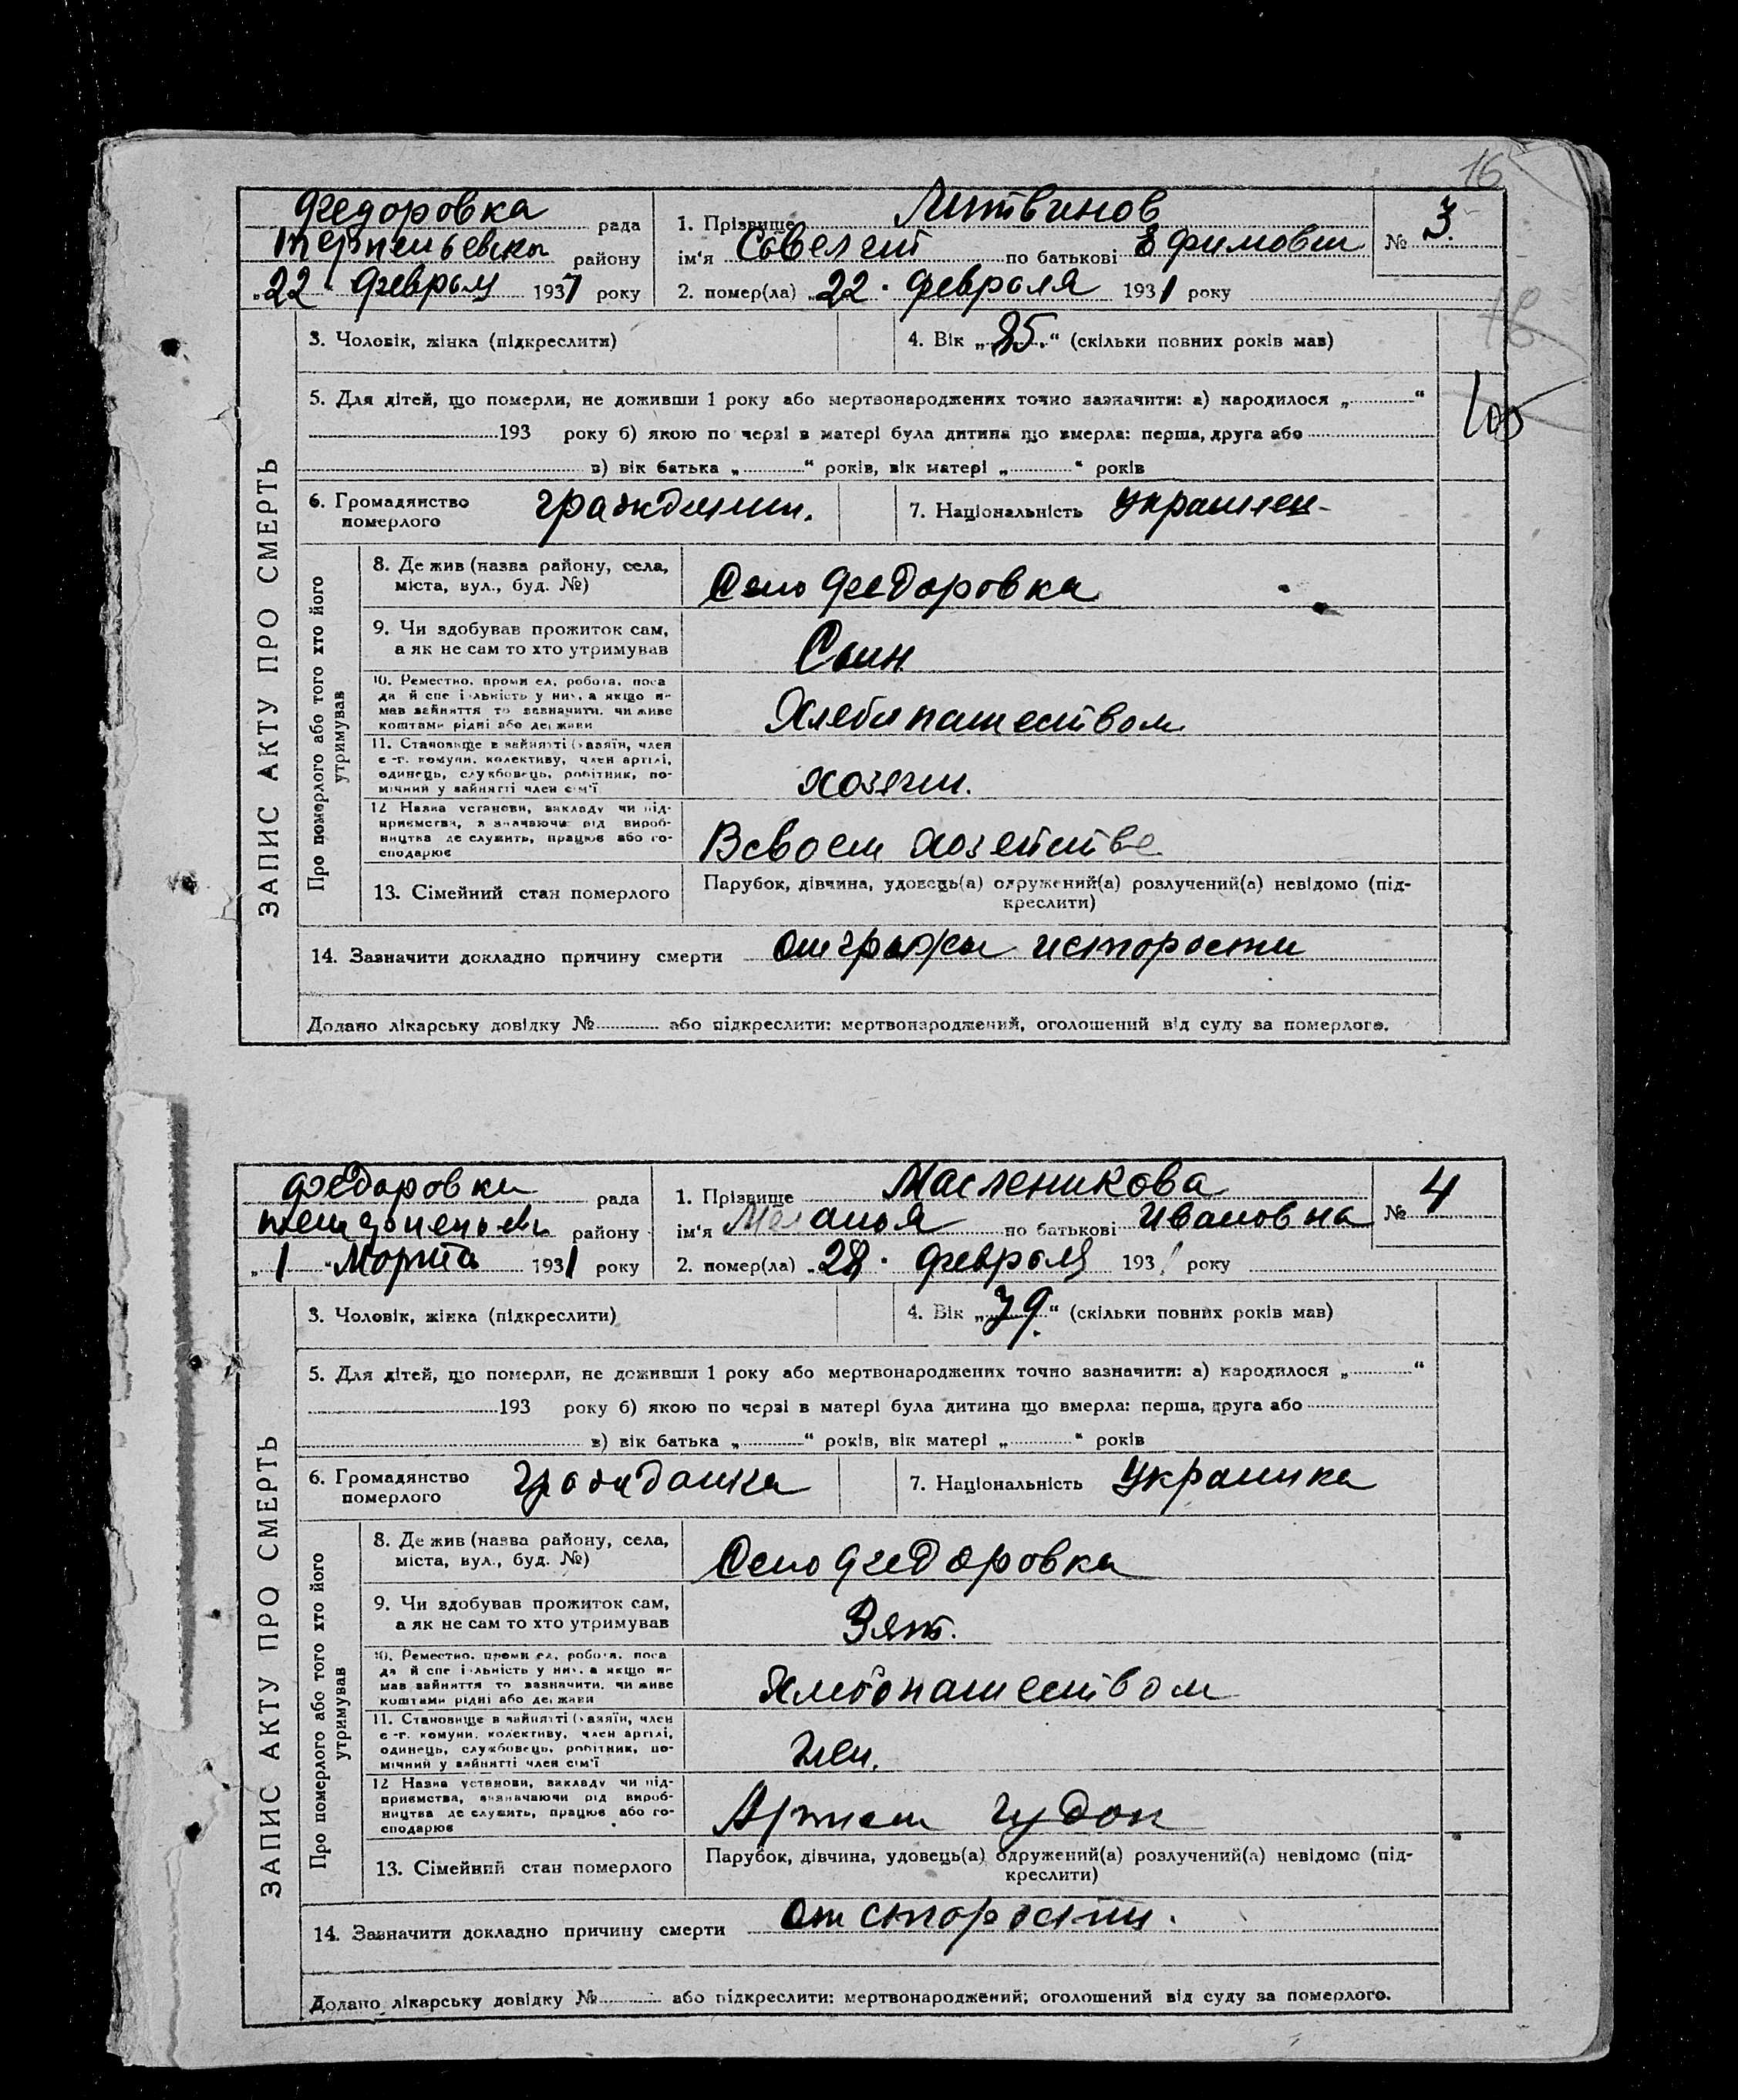 16
Федоровка рада
Терпеньевски району
„22“ февраля 1931 року
1. Прізвище Литвинов
ім'я Савелей по батькові Ефимович
2. помер(ла) „22“ февраля 1931 року
№ 3.
ЗАПИС АКТУ ПРО СМЕРТЬ
3. Чоловік, жінка (підкреслити)
4. Вік „85.“ (скільки повних років мав)
5. Для дітей, що померли, не доживши 1 року або мертвонароджених точно зазначити: а) народилося „ “
193 року б) якою по черзі в матері була дитина що вмерла: перша, друга або
в) вік батька „ “ років, вік матері „ “ років
6. Громадянство померлого гражданин.
7. Національність Украинец
Про померлого або того хто його утримував
8. Де жив (назва району, села,
міста, вул., буд. №) Село Федоровка
9. Чи здобував прожиток сам,
а як не сам то хто утримував Сын
10. Реместно, промисел, робота, поса
да й спеціальність у них, а якщо не
мав зайняття то зазначити, чи живе
коштами рідні або держави Хлебопашеством
11. Становище в зайнятті (хазяїн, член
с-г. комуни, колективу, член артілі,
одинець, службовець, робітник, по-
мічний у зайнятті член сім'ї хозяин.
12 Назва установи, закладу чи під-
приємства, зазначаючи рід вироб-
ництва де служить, працює або го-
сподарює В своем хозействе
13. Сімейний стан померлого
Парубок, дівчина, удовець(а) одружений(а) розлучений(а) невідомо (під-
креслити)
14. Зазначити докладно причину смерти от грыжи и старости
Додано лікарську довідку № або підкреслити: мертвонароджений, оголошений від суду за померлого.
Федоровка рада
району
„1“ Марта 1931 року
1. Прізвище Масленикова
ім'я Меланья по батькові Ивановна
2. помер(ла) „28“ февраля 1931 року
№ 4
ЗАПИС АКТУ ПРО СМЕРТЬ
3. Чоловік, жінка (підкреслити)
4. Вік „79.“ (скільки повних років мав)
5. Для дітей, що померли, не доживши 1 року або мертвонароджених точно зазначити: а) народилося „ “
193 року б) якою по черзі в матері була дитина що вмерла: перша, друга або
в) вік батька „ “ років, вік матері „ “ років
6. Громадянство померлого гражданка
7. Національність Украинка
Про померлого або того хто його утримував
8. Де жив (назва району, села,
міста, вул., буд. №) Село Федоровка
9. Чи здобував прожиток сам,
а як не сам то хто утримував Зять.
10. Реместно, промисел, робота, поса
да й спеціальність у них, а якщо не
мав зайняття то зазначити, чи живе
коштами рідні або держави Хлебопашеством
11. Становище в зайнятті (хазяїн, член
с-г. комуни, колективу, член артілі,
одинець, службовець, робітник, по-
мічний у зайнятті член сім'ї член.
12 Назва установи, закладу чи під-
приємства, зазначаючи рід вироб-
ництва де служить, працює або го-
сподарює
13. Сімейний стан померлого
Парубок, дівчина, удовець(а) одружений(а) розлучений(а) невідомо (під-
креслити)
14. Зазначити докладно причину смерти от старости.
Додано лікарську довідку № або підкреслити: мертвонароджений; оголошений від суду за померлого.